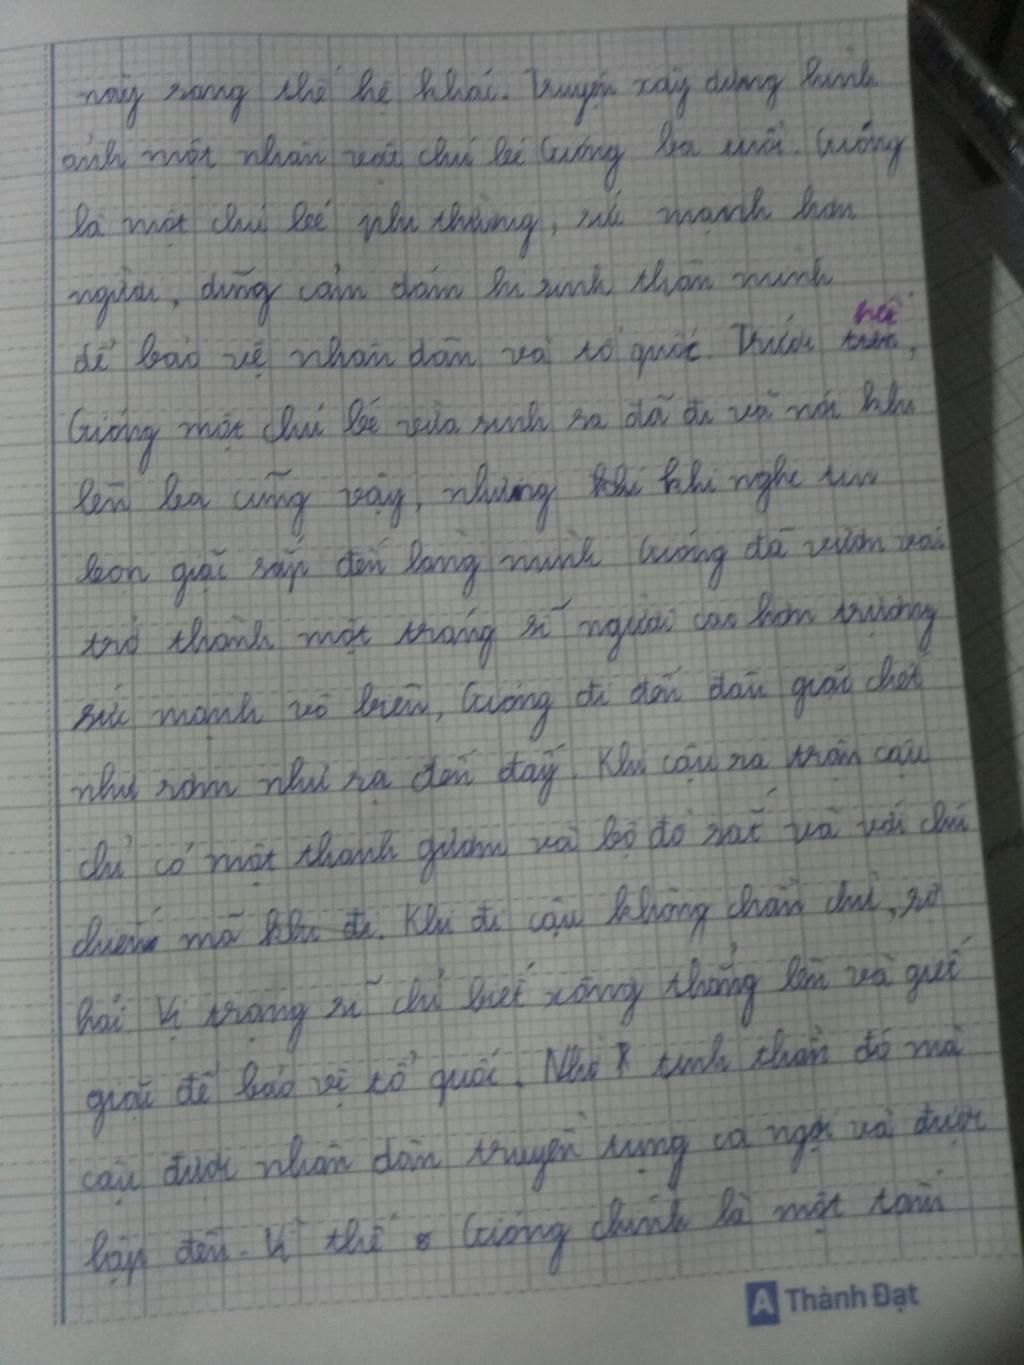 này sang thế hệ khác. Truyện xây dựng hình
ảnh một nhân vật chú bé Gióng ba tuổi. Gióng
là một chú bé phi thường, sức mạnh hơn
người, dũng cảm dám hi sinh thân mình
để bảo vệ nhân dân và tổ quốc. Trước hết,
Gióng một chú bé vừa sinh ra đã đi và nói khi
lên ba cũng vậy, nhưng khi nghe tin
bọn giặc sắp đến làng mình Gióng đã vươn vai
trở thành một tráng sĩ người cao hơn trượng
sức mạnh vô biên, Gióng đi đến đâu giặc chết
như rơm như rạ đến đấy. Khi cậu ra trận cậu
chỉ có một thanh gươm và bộ đồ sắt và với chú
mã khi đi. Khi đi cậu không chần chừ, sợ
hãi. Vị trạng sĩ chỉ biết xông thẳng lên và giết
giặc để bảo vệ tổ quốc. Nhờ tinh thần đó mà
cậu được nhân dân truyền tụng ca ngợi và được
lập đền. Vì thế Gióng chính là một tấm
A Thành Đạt